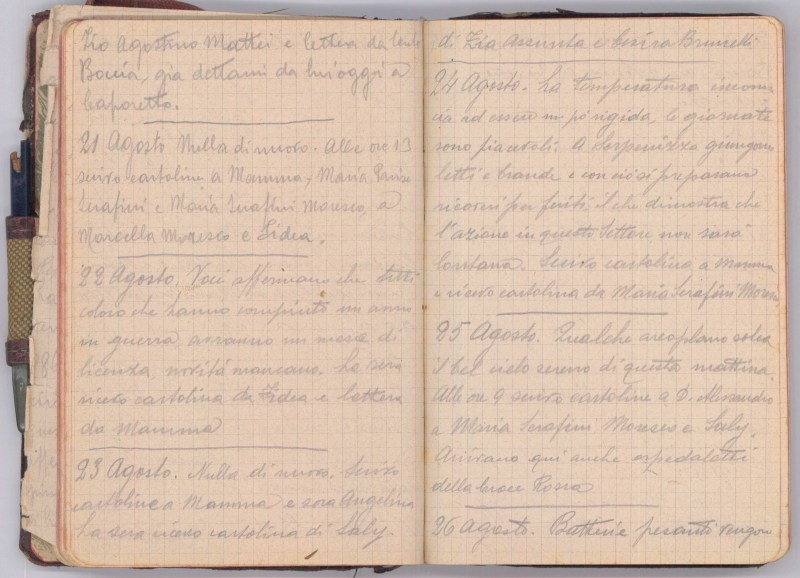 Zio Agostino Mattei e lettera da
Boccia, gia dettami da lui oggi a
Caporetto.
21 Agosto Nulla di nuovo. Alle ore 13
scrivo cartoline a Mamma, Maria
Serafini e Maria Serafini Moresco, a
Marcella Moresco e Lidea.
22 Agosto. Voci affermano che tutti
coloro che hanno compiuto un anno
in guerra, avranno un mese di
licenza, novità mancano. La sera
ricevo cartolina da Lidea e lettera
da Mamma
23 Agosto. Nulla di nuovo. Scrivo
cartoline a Mamma e sora Angelina
La sera ricevo cartolina di Saly.
di Zia Assunta e Cesira Brunelli
24 Agosto. La temperatura incomin
cia ad essere un pó rigida, le giornate
sono piacevoli. A Serpenizza giungono
letti e brande e con ciò si preparano
ricoveri per feriti il che dimostra che
l'azione in questo settore non sarà
lontana. Scrivo cartolina a Mamma
e ricevo cartolina da Maria Serafini Moresco
25 Agosto. Qualche areoplano solca
il bel cielo sereno di questa mattina.
Alle ore 9 scrivo cartoline a D. Alessandro
a Maria Serafini Moresco e Saly.
Arrivano qui anche ospedaletti
della Croce Rossa
26 Agosto. Batterie pesanti vengono